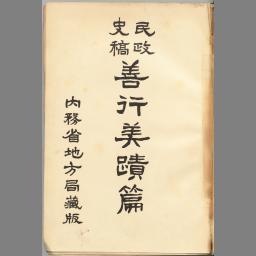 民政史稿
善行美蹟篇
内務省地方局藏版